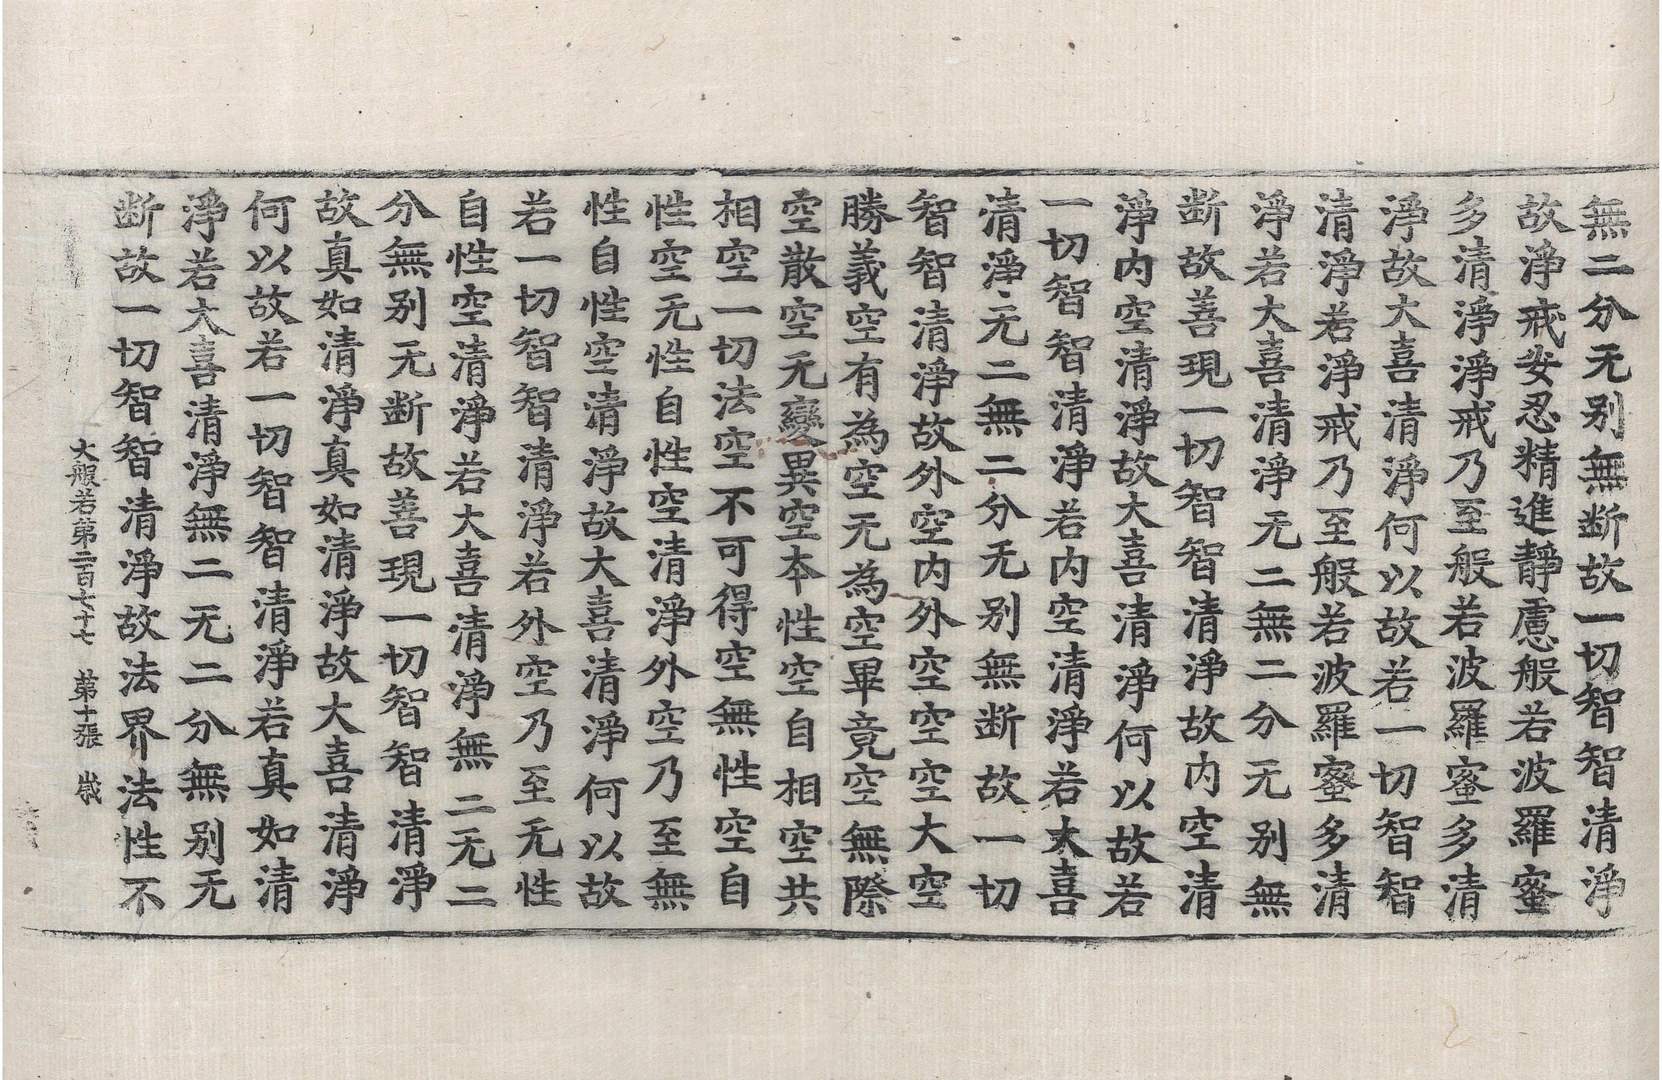 無二分无别無断故一切智智清淨
故淨戒安忍精進靜慮般若波羅蜜
多清淨淨戒乃至般若波羅蜜多清
淨故大喜清淨何以故若一切智智
清淨若淨戒乃至般若波羅蜜多清
淨若大喜清淨无二無二分无别無
断故善現一切智智清淨故内空清
淨内空清淨故大喜清淨何以故若
一切智智清淨若内空清淨若大喜
清淨无二無二分无别無断故一切
智智清淨故外空内外空空空大空
勝義空有為空无為空畢竟空無際
空散空无變異空本性空自相空共
相空一切法空不可得空無性空自
性空无性自性空清淨外空乃至無
性自性空清淨故大喜清淨何以故
若一切智智清淨若外空乃至无性
自性空清淨若大喜清淨無二无二
分無别无断故善現一切智智清淨
故真如清淨真如清淨故大喜清淨
何以故若一切智智清淨若真如清
淨若大喜清淨無二无二分無别无
断故一切智智清淨故法界法性不
大般若第二百七十七 第十張 歲